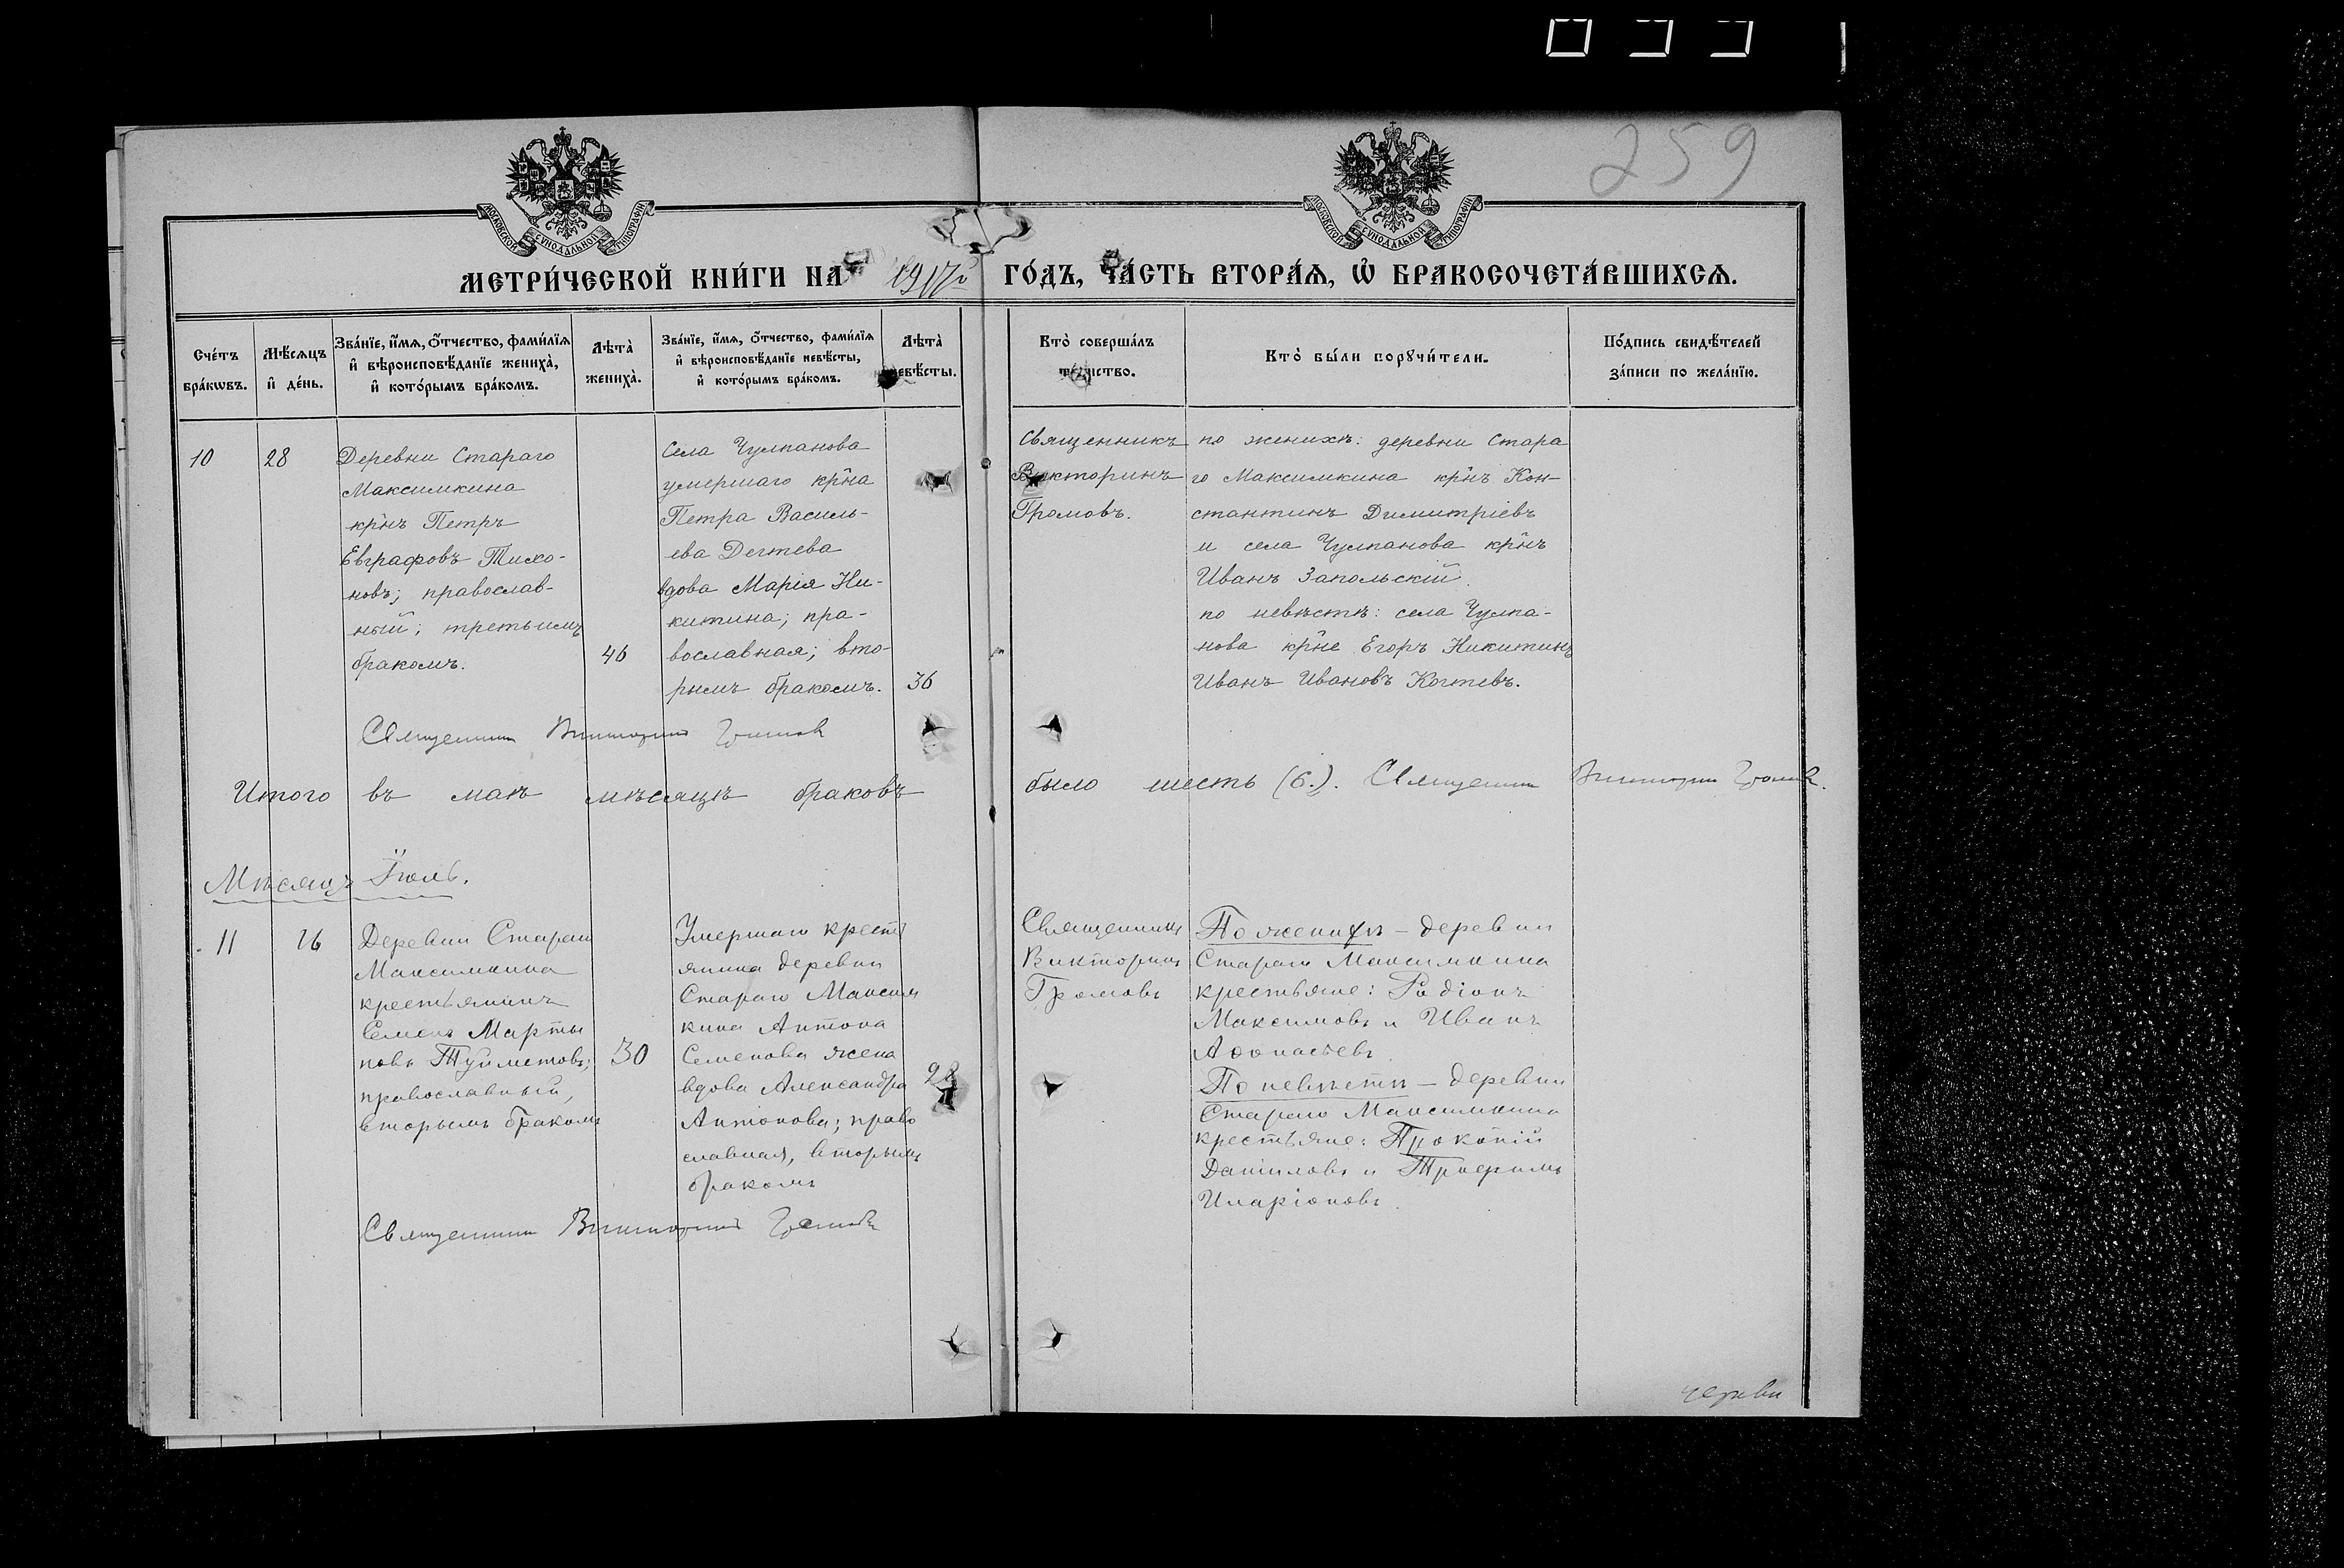 259
МОСКОВСКОЙ СѴНОДАЛЬНОЙ ТИПОГРАФІИ
МОСКОВСКОЙ СѴНОДАЛЬНОЙ ТИПОГРАФІИ
МЕТРИ́ЧЕСКОЙ КНИ́ГИ НА 1917й ГО́ДЪ, ЧА́СТЬ ВТОРА́Ѧ, Ѡ҆ БРАКОСОЧЕТА́ВШИХСѦ.
Сче́тъ бра́кѡвъ.
Мѣ́сѧцъ и҆ де́нь.
Зва́нїе, и҆́мѧ, ѻ҆́тчество, фами́лїѧ и҆ вѣроисповѣ́данїе жениха̀, и҆ кото́рымъ бра́комъ.
Лѣта̀ жениха̀.
Зва́нїе, и҆́мѧ, ѻ҆́тчество, фами́лїѧ и҆ вѣроисповѣ́данїе невѣ́сты, и҆ кото́рымъ бра́комъ.
Лѣта̀ невѣ́сты.
Кто̀ соверша́лъ та́инство.
Кто̀ бы́ли порꙋчи́тели.
По́дпись свидѣ́телей за́писи по жела́нїю.
10
28
Деревни Стараго
Максимкина
кр̃нъ Петръ
Евграфовъ Тихо-
новъ; православ-
ный; третьимъ
бракомъ.
46
Села Чулпанова
умершаго кр̃на
Петра Василь-
ева Дегтева
вдова Марія Ни-
китина; пра-
вославная; вто-
рымъ бракомъ.
36
Священникъ
Викторинъ
Громовъ.
по женихѣ: деревни Стара
го Максимкина кр̃нъ Кон-
стантинъ Димитріевъ
и села Чулпанова кр̃нъ
Иванъ Запольскій.
по невѣстѣ: села Чулпа-
нова кр̃не Егоръ Никитинъ
Иванъ Ивановъ Когтевъ.
Священникъ Викторинъ Громовъ
Итого въ маѣ мѣсяцѣ браковъ было шесть (6.). Священникъ Викторинъ Громовъ.
Мѣсяцъ Іюль.
11
26
Деревни Стараго
Максимкина
крестьянинъ
Семенъ Марты
новъ Туйметовъ;
православный,
вторымъ бракомъ
30
Умершаго кресть
янина деревни
Стараго Максим
кина Антона
Семенова жена
вдова Александра
Антонова; право
славная, вторымъ
бракомъ
28
Священникъ
Викторинъ
Громовъ
По женихѣ – деревни
Стараго Максимкина
крестьяне: Родіонъ
Максимовъ и Иванъ
Аѳонасьевъ.
По невѣстѣ – деревни
Стараго Максимкина
крестьяне: Прокопій
Даниловъ и Трофимъ
Иларіоновъ.
Священникъ Викторинъ Громовъ
церкви